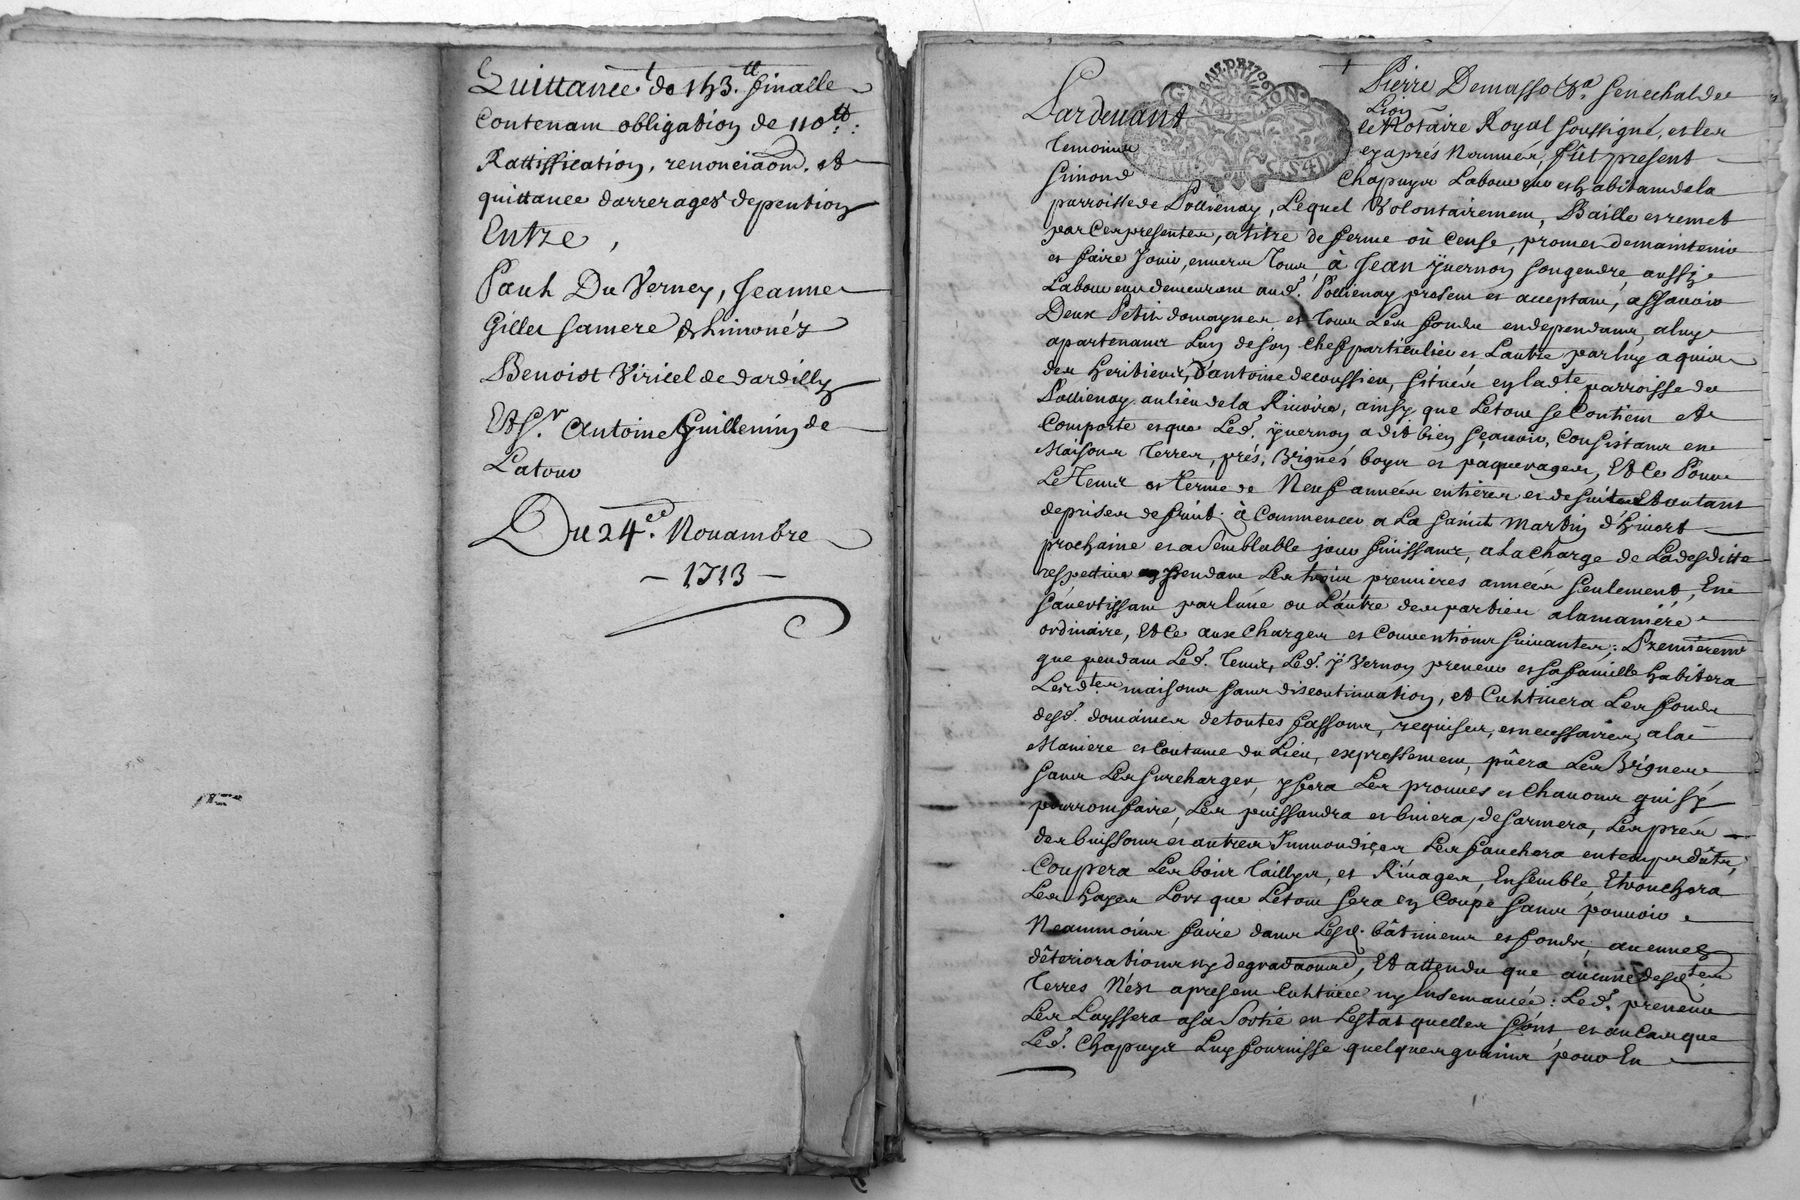 Quittance de 143.tt finalle
Contenant obligation de 110tt.
Rattiffication, renonciaon. et
quittance darrerages depention
Entre,
Paul Du Verney, Jeanne
Gilles sa mere de Limonéz
Benoist Viricel de dardilly
Et Sr. Antoine Guillemin de
Latour
Du 24.e Nouambre
- 1713 -
GEN. DE LION
Pardeuant Pierre Demasso Sr. Senechal de
Lion
le Notaire Royal soussigné, et les
temoins cy aprés Nommés, fût present
Simond Chapuys Laboureur et habitant de la
parroisse de Pollienay, Lequel Volontairement, Baille et remet
par Ces presentes, a titre de ferme où Cense, promet de maintenir
et faire Jouir, enuers tous, à Jean yuernon son gendre, aussy
Laboureur demeurant aud. Pollienay present et acceptant, assauoir
Deux Petits domaynes et tous Les fonds en dependants, a luy
apartenants Lun de son Chef particulier et Lautre par luy aquis
des heritiers, d'antoine decoussieu, situés en ladte parroisse de
Pollienay au lieu de la Riuoire, ainsy que Letout se Contient et
Comporte et que Led. yuernon a dit bien sçauoir, Consistants en
Maisons Terres, prés, Vignes boys et paquerages, Et Ce Pour
Le Temps et terme de Neuf années entieres et desuitte Et autant
de prises de fruits à Commencer a La Saint Martin d'hiuert
prochaine et a Semblable jour finissant, a La Charge de La desditte
respectiue pendant Les trois premieres années Seulement, En
s'auertissant par lune ou Lautre des parties a la maniere
ordinaire, Et Ce aux Charges et Conuentions Suiuantes: Premierement
que pendant Led. temps, Led. yVernon preneur et sa famille habitera
Lesdtes maisons sans discontinuation, et Cultiuera Les fonds
desd. domaines de toutes fassons, requises, et necessaires, a la
Maniere et Coutume du Lieu, expressement, pûera Les Vignes
sans Les surcharger, y fera Les prouues et Chauons qui s'y
pourront faire, Les puissandra et binera, desarmera, Les prés
des buissons et autres Immondices Les fauchera en temps dûts,
Coupera Les bois taillys, et Riuages, Ensemble, Etronchera
Les hayes Lors que Letout sera en Coupe sans pouuoir
Neammoins faire dans Lesd. bâtiments et fonds aucunnes
déteriorations ny degradaons, Et attendu que aucune desdtes
Terres N'est apresent Cultiuée ny Ensemancée: Led. preneur
Les Layssera a sa Sortie en Lestat quelles sont et au Cas que
Led. Chapuys Luy fournisse quelques grains pour En